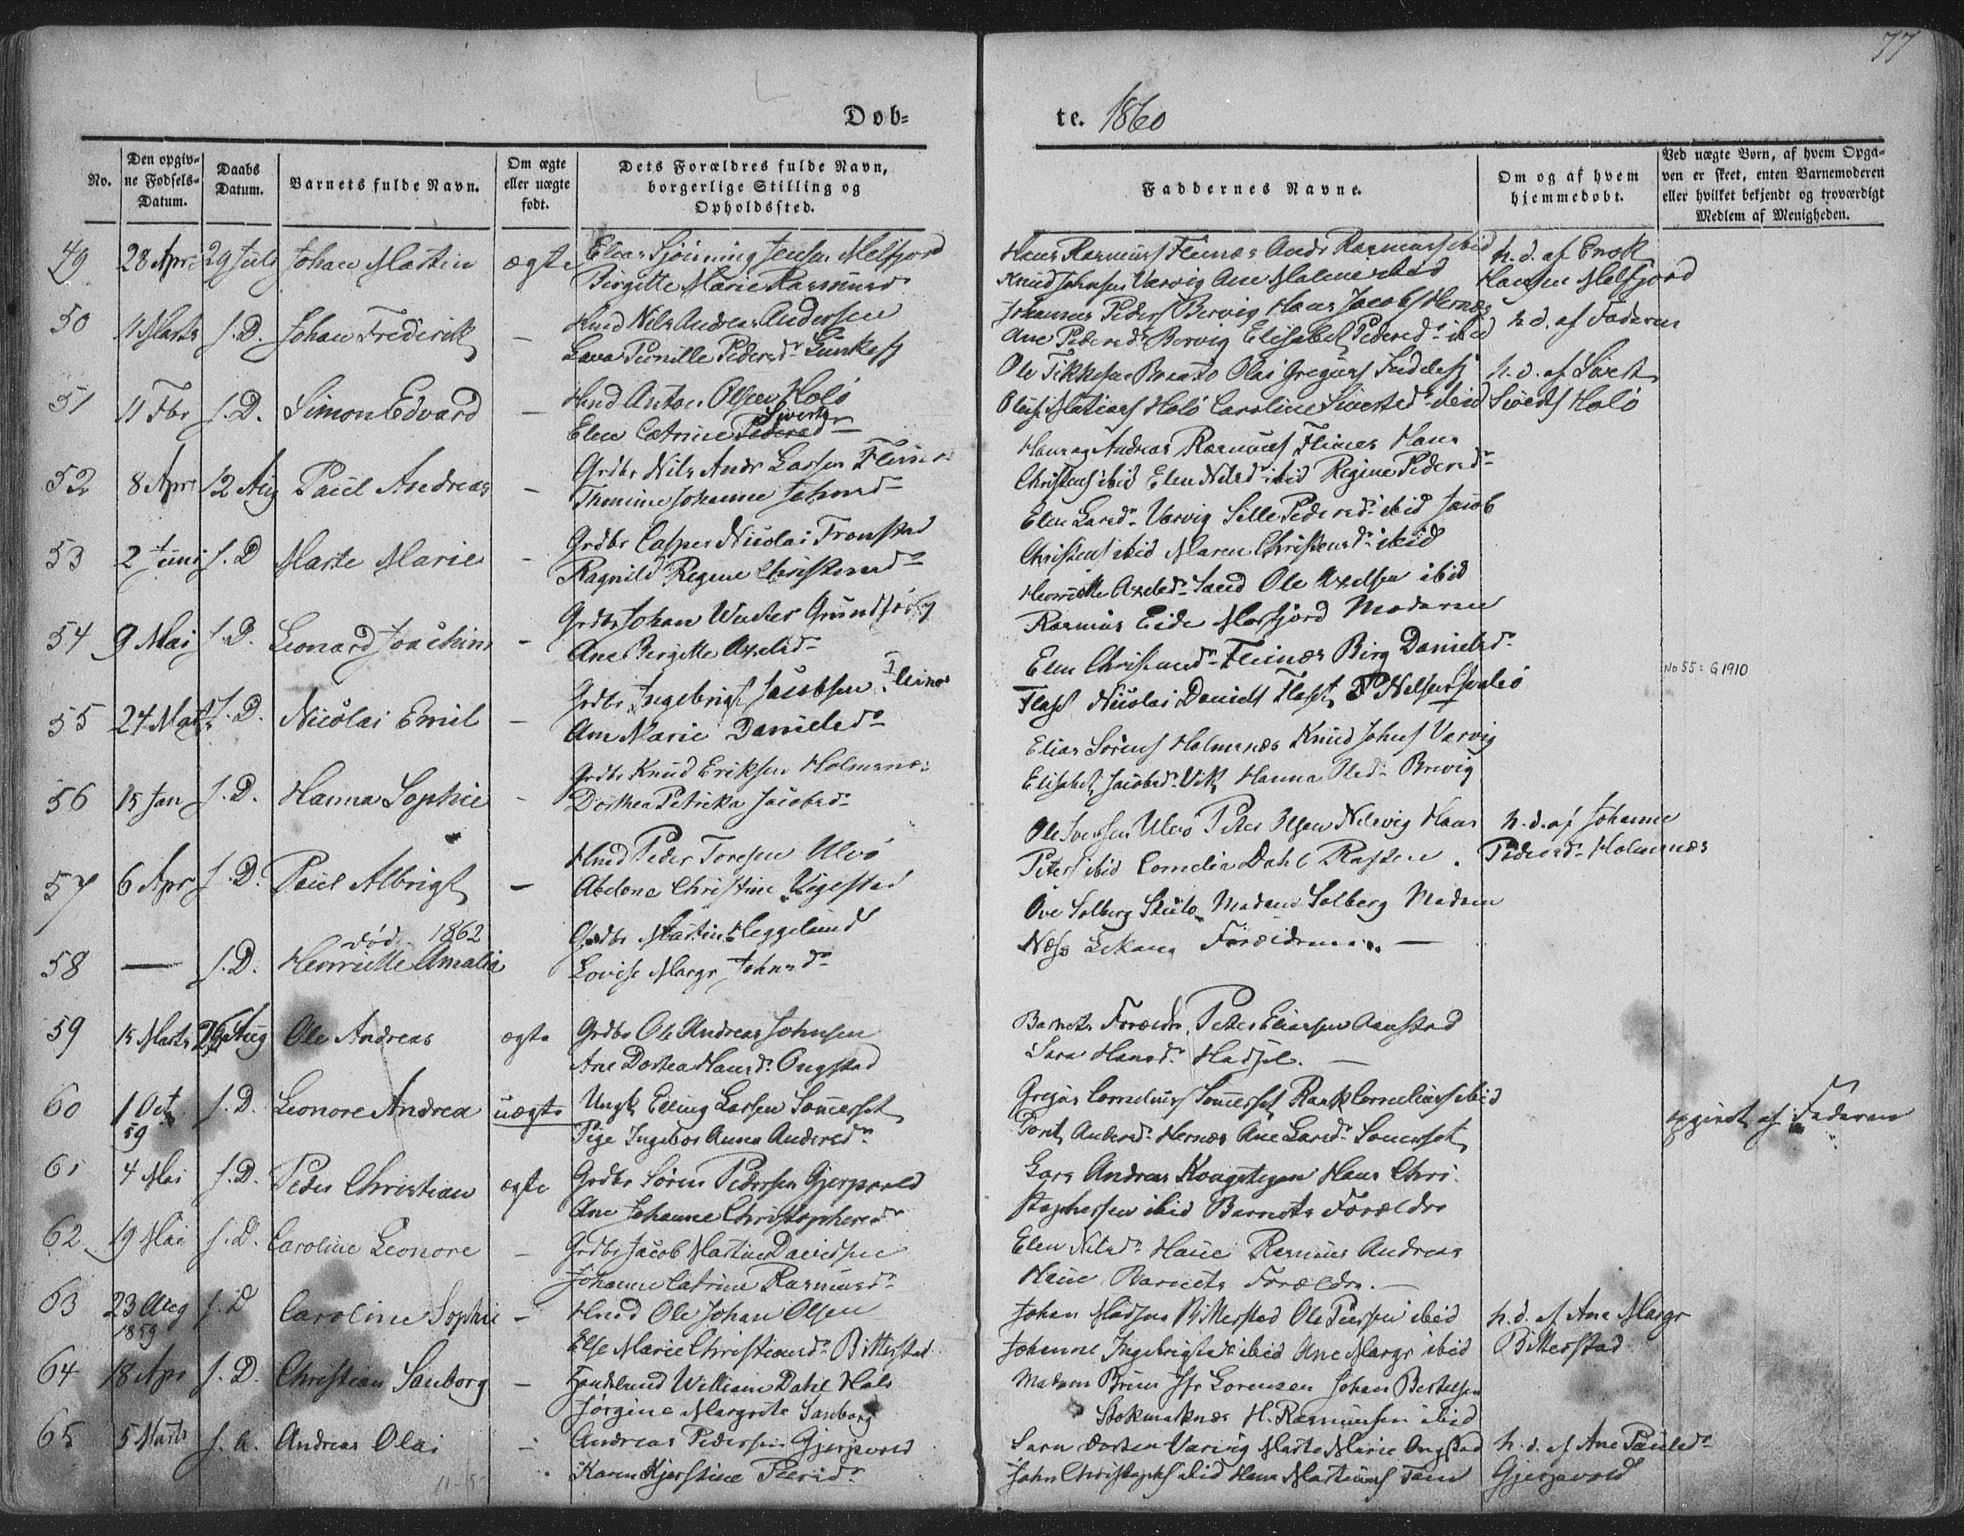 77
Døb-
te. 1860
No.
Den opgiv-
ne Fødsels-
Datum.
Daabs
Datum.
Barnets fulde Navn.
Om ægte
eller uægte
født.
Dets Forældres fulde Navn,
borgerlige Stilling og
Opholdssted.
Faddernes Navne.
Om og af hvem
hjemmedøbt.
Ved uægte Børn, af hvem Opga-
ven er skeet, enten Barnemoderen
eller hvilket bekjendt og troværdigt
Medlem af Menigheden.
49 28 Apri 29 Juli Johan Martin ægte Elias Jensen Melfjord
Birgitte Marie Rasmusd
Hans Rasmuss Fleinæs Andr Rasmuss ibid
Knud Johnsen Varvig Ane Malene ibid
h. d. af Enok
Hansen Melfjord
50 11 Marts s. D. Johan Frederik — Hmd Nils Andreas Andersen
Lava Pernille Pedersd
Johannes Peders Bervig Hans Jacobs Hernæs
Ane Pedersd Bervig Elisabet Pedersd ibid
h. d. af Faderen
51 11 Fbr s. D. Simon Edvard — Hmd Anton Olsen Holø
Siverts
Elen Catrine Pedersd
Ole Olai Gregers
Matias Holø Caroline Sivertsd ibid
h. d. af Sivert
Siverts Holø
52 8 Apri 12 Aug Paul Andreas — Grdbr Nils Andr Larsen Fleines
Johanne Johnsd
Hans og Andreas Rasmuss Fleines Hans
Christens ibid Elen Nilsd ibid Regine Pedersd
53 2 Juni s. D Marte Marie - Grdbr Casper Nicolai Frønstad
Ragnild Regine Christensd
Elen Larsd Varvig Sille Pedersd ibid Jacob
Christens ibid Maren Christensd ibid
54 9 Mai s. D. Leonard Joachim - Grdbr Johan
Ane Birgitte Axelsd
Henriette Axelsd Sand Ole Axelsen ibid
Rasmus Eide Morfjord Moderen
55 24 Marts s. D. Nicolai Emil — Grdbr Ingebrigt Jacobsen Fleines
Ane Marie Danielsd
Elen Christensd Fleinæs Birg Danielsd
Nicolai Daniels
No 55: G 1910
56 15 Jan s. D. Hanna Sophie - Grdbr Knud Eriksen Holmsnæs
Dorthea Petrikka Jacobsd
Elias Sørens Holmsnæs Knud Johns Varvig
Elisabet Jacobsd Vik Hanna Olsd Brevig
57 6 Apr s. D. Paul Albrigt — Hmd Peder Toresen Ulvø
Abelona Christine Vigestad
Ole Svensen Ulvø Peter Olsen Nilsvig Hans
Peters ibid Cornelia Dahl Raften.
h. d. af Johanne
Pedersd Holmsnæs
død 1862
58 — s. D. Henriette Amalia Grdbr Martin Heggelund
Lovise Margr Johnsd
Ove Solberg Madam Solberg Madam
Forældrene —
59 15 Marts 26 Aug Ole Andreas ægte Grdbr Ole Andreas Johnsen
Ane Dortea Hansd Ongstad
Barnets Forældre, Peter Eliassen Aanstad
Sara Hansd Hadsel. —
60 1 Oct
59
s. D. Leonore Andrea uægte Ungk Elling Larsen Sommerset
Pige Ingebor Anna Andersd
Cornelius Sommerset Cornelius ibid
Berit Andersd Hernæs Ane Larsd Sommerset
opgivet af Faderen
61 4 Mai s. D. Peder Christian ægte Grdbr Søren Pedersen Gjerpvold
Ane Johanne Christophersd
Lars Andreas Kongstegen Hans Chri-
stophersen ibid Barnets Forældre
62 19 Mai s. D. Caroline Leonore — Grdbr Jacob Martin Davidsen
Johanne Catrine Rasmusd
Elen Nilsd Haue Rasmus Andreas
Haue Barnets Forældre. —
63 23 Aug
1859
s. D Caroline Sophie — Hmd Ole Johan Olsen
Else Marie Christiansd Bitterstad
Johan Madsen Bitterstad Ole Peersen ibid
Johanne Ingebrigtsd ibid Ane Margr ibid
h. d. af Ane Margr
Bitterstad
64 18 Apr s. D. Christian Sanborg — Handelsmd William Dahl
Jørgine Margrete Sanborg
Madam Bruun Jfr Lorensen Johan Bertelsen
Stokmarknæs H. Rasmussen ibid
65 5 Marts s. d. Andreas Olai — Andreas Pedersen Gjerpvold
Karen Kjerstine
Sara Dortea Varvig Marte Marie Ongstad
John Christophs ibid Hans
h. d. af Ane Paulsd
Gjerpvold